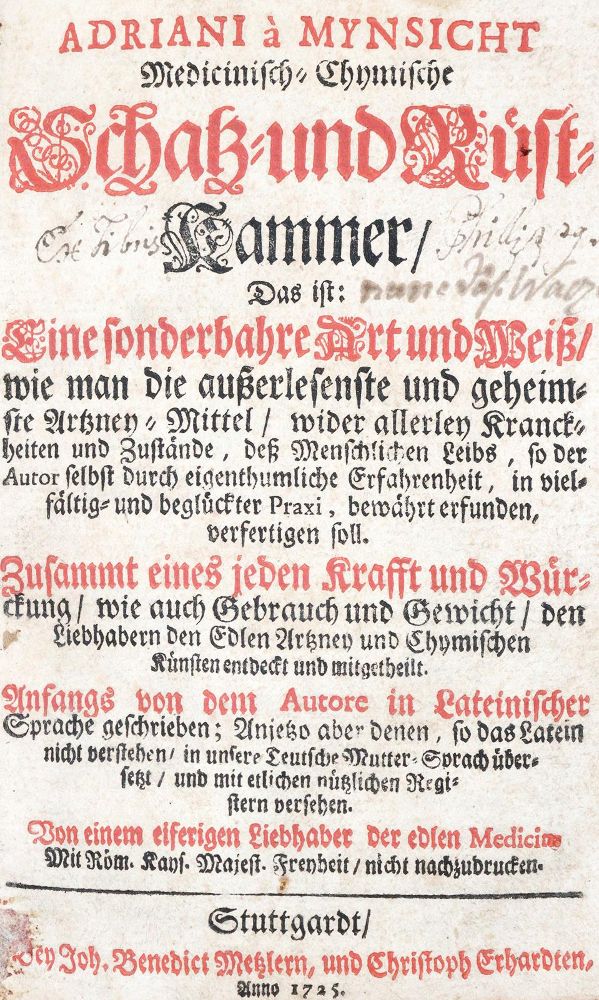 ADRIANI à MYNSICHT
Medicinisch-Chymische
Schatz-und Rüst-
Kammer/
Ex Libris
Philip
nunc Jos. Wag
Das ist:
Eine sonderbahre Art und Weiß/
wie man die außerlesenste und geheim-
ste Artzney-Mittel/ wider allerley Kranck-
heiten und Zustände, deß Menschlichen Leibs, so der
Autor selbst durch eigenthumliche Erfahrenheit, in viel-
fältig- und beglückter Praxi, bewährt erfunden,
verfertigen soll.
Zusammt eines jeden Krafft und Wür-
ckung/ wie auch Gebrauch und Gewicht/ den
Liebhabern den Edlen Artzney und Chymischen
Künsten entdeckt und mitgetheilt.
Anfangs von dem Autore in Lateinischer
Sprache geschrieben; Anjetzo aber denen, so das Latein
nicht verstehen/ in unsere Teutsche Mutter-Sprach über-
setzt/ und mit etlichen nützlichen Regi-
stern versehen.
Von einem eiferigen Liebhaber der edlen Medicin
Mit Röm. Kays. Majest. Freyheit/ nicht nachzudrucken.
Stuttgardt/
Bey Joh. Benedict Metzlern, und Christoph Erhardten,
Anno 1725.